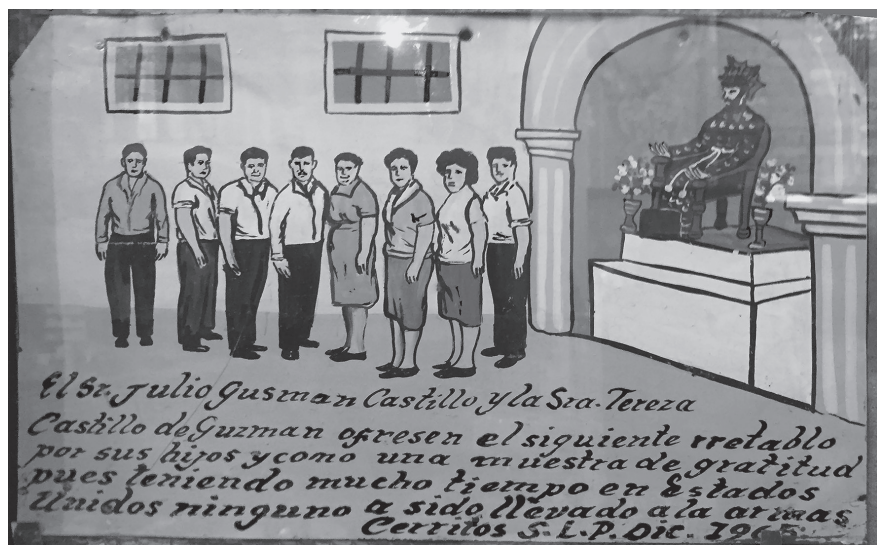 El Sr. Julio Gusman Castillo y la Sra. Tereza
Castillo de Guzman ofresen el siguiente rretablo
por sus hijos y como una muestra de gratitud
pues teniendo mucho tiempo en Estados
Unidos ninguno a sido llevado a la armas
Cerritos S.L.P. Dic.